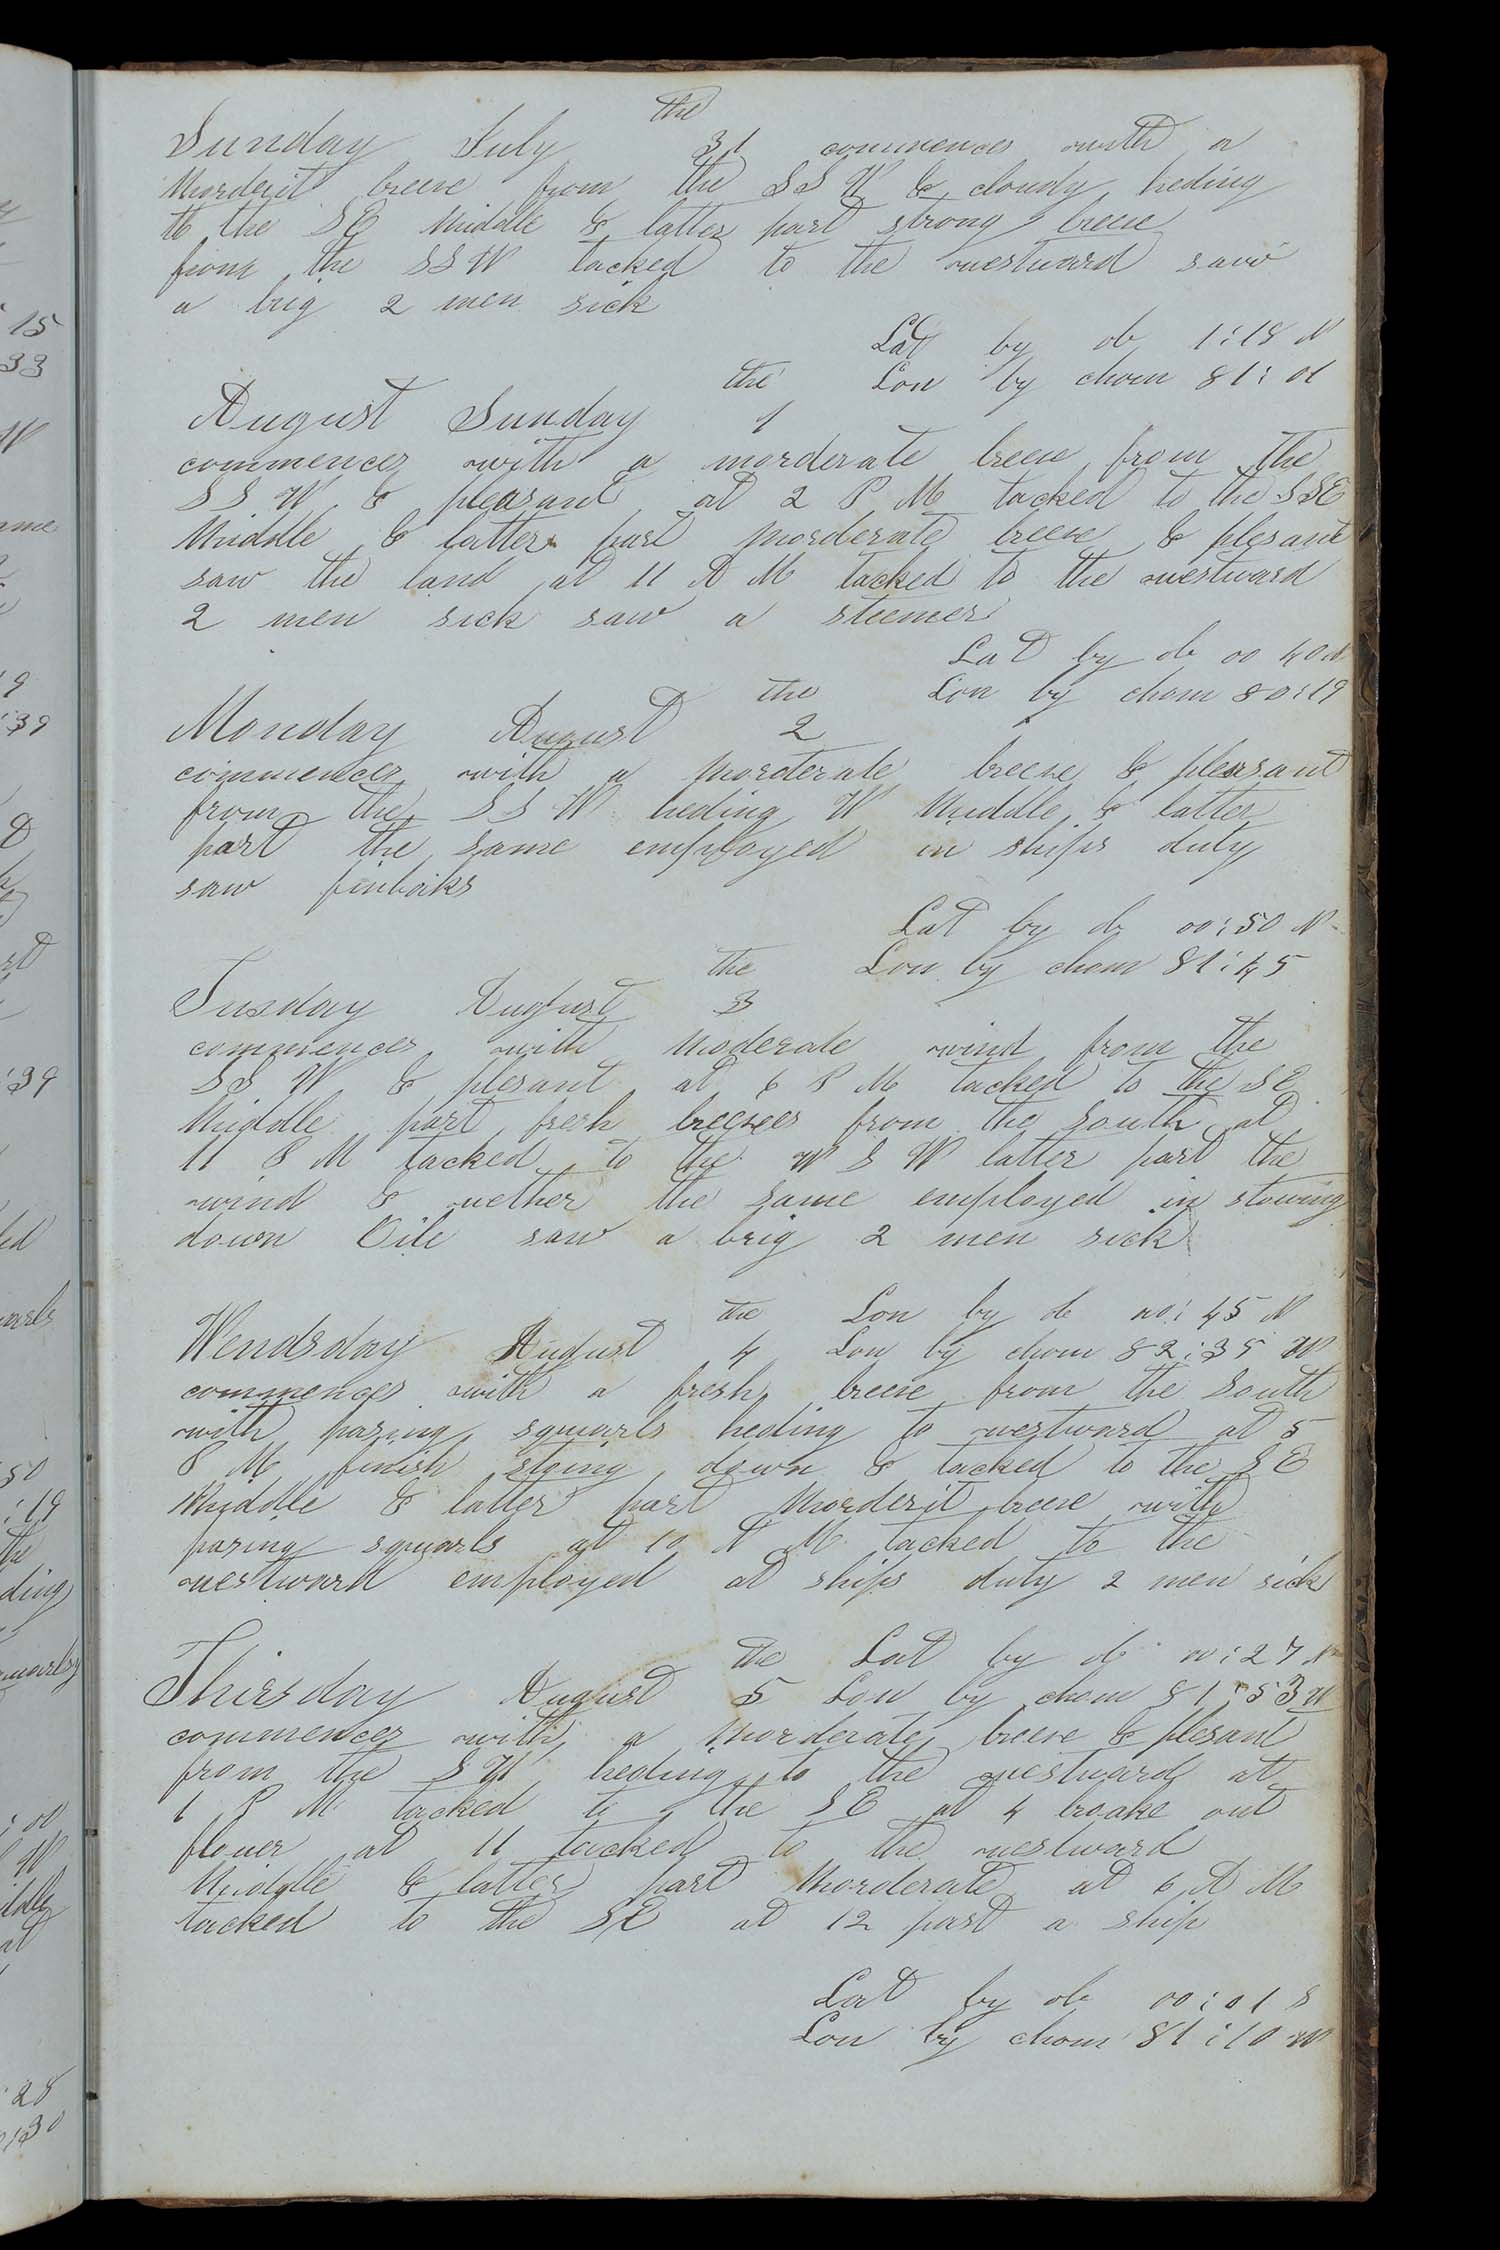 the
Sunday July 31 commences with a
Morderit breese from the SSW & cloudy heding
to the SE Middle & latter part strong breese
from the SSW tacked to the westward saw
a brig 2 men sick
Lat by ob 1:18 N
the Lon by chom 81:01
August Sunday 1
commences with a morderate breese from the
SSW & pleasant at 2 P M tacked to the SSE
Middle & latter part morderate breese & plesant
saw the land at 11 A M tacked to the westward
2 men sick saw a steemer
Lat by ob 00 40 N
the Lon by chom 80:19
Monday August 2
commences with a morderate breese & pleasant
from the SSW heding W Middle & latter
part the same employed in ships duty
saw finbaks
Lat by ob 00:50 N
the Lon by chom 81:45
Tusday August 3
commences with moderate wind from the
SSW & plesant at 6 P M tacked to the SE
Middle part fresh breeses from the South at
11 P M tacked to the WSW latter part the
wind & wether the same employed in stowing
down Oile saw a brig 2 men sick
the Lon by ob 00:45 N
Wendsday August 4 Lon by chom 82:35 W
commences with a fresh breese from the South
with pasing squarls heding to westward at 5
P M finish stoing down & tacked to the SE
Middle & latter part Morderit breese with
pasing squarls at 10 A M tacked to the
westward employed at ships duty 2 men sick
the Lat by ob 00:27 N
Thirsday August 5 Lon by chom 81:53 W
commences with a Morderate breese & plesant
from the SW heding to the westward at
1 P M tacked to the SE at 4 broake out
flouer at 11 tacked to the westward
Middle & latter part Morderate at 6 A M
tacked to the SE at 12 past a ship
Lat by ob 00:01 S
Lon by chom 81:10 W